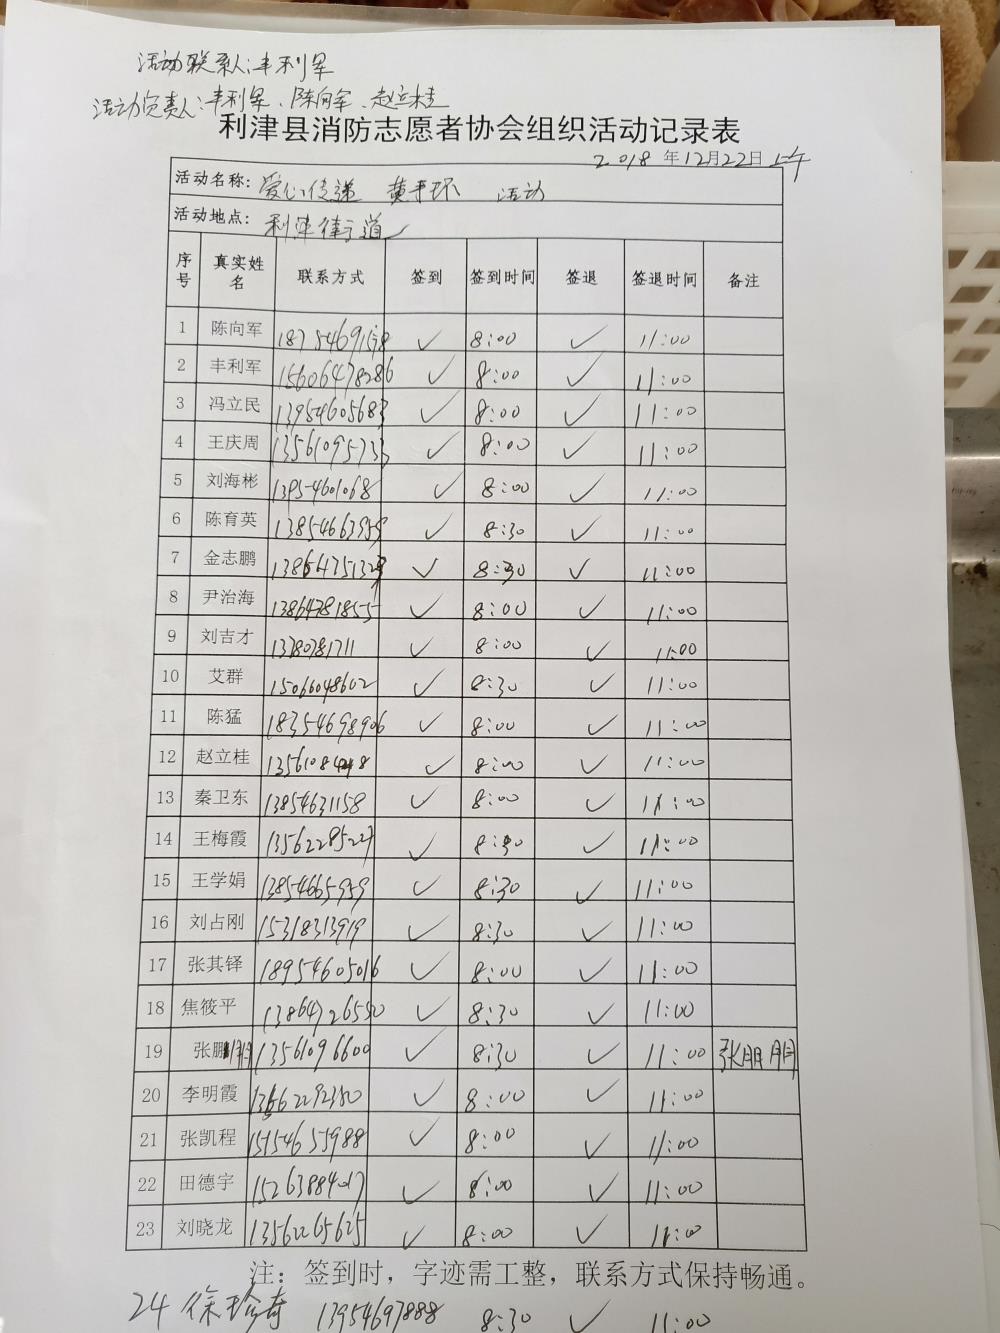 活动联系人:丰利军
活动负责人:丰利军、陈向军、赵立桂
利津县消防志愿者协会组织活动记录表
2018年12月22日上午
活动名称:爱心传递 黄手环 活动
活动地点:利津街道
序号 真实姓名 联系方式 签到 签到时间 签退 签退时间 备注
1 陈向军 ✓ 8:00 ✓ 11:00
2 丰利军 15606478286 ✓ 8:00 ✓ 11:00
3 冯立民 13954605683 ✓ 8:00 ✓ 11:00
4 王庆周 13561095733 ✓ 8:00 ✓ 11:00
5 刘海彬 13954601068 ✓ 8:00 ✓ 11:00
6 陈育英 13854663959 ✓ 8:30 ✓ 11:00
7 金志鹏 ✓ 8:30 ✓ 11:00
8 尹治海 13864781855 ✓ 8:00 ✓ 11:00
9 刘吉才 ✓ 8:00 ✓ 11:00
10 艾群 15066048602 ✓ 8:30 ✓ 11:00
11 陈猛 18354698906 ✓ 8:00 ✓ 11:00
12 赵立桂 ✓ 8:00 ✓ 11:00
13 秦卫东 13854631158 ✓ 8:00 ✓ 11:00
14 王梅霞 13562285227 ✓ 8:30 ✓ 11:00
15 王学娟 13854665959 ✓ 8:30 ✓ 11:00
16 刘占刚 15318313919 ✓ 8:30 ✓ 11:00
17 张其铎 18954605016 ✓ 8:00 ✓ 11:00
18 焦筱平 13864726550 ✓ 8:30 ✓ 11:00
19 张鹏朋 13561096600 ✓ 8:30 ✓ 11:00 张朋朋
20 李明霞 ✓ 8:00 ✓ 11:00
21 张凯程 15154655988 ✓ 8:00 ✓ 11:00
22 田德宇 15263884017 ✓ 8:00 ✓ 11:00
23 刘晓龙 13562265625 ✓ 8:00 ✓ 11:00
注:签到时,字迹需工整,联系方式保持畅通。
24 徐珍奇 13954697888 8:30 ✓ 11:00